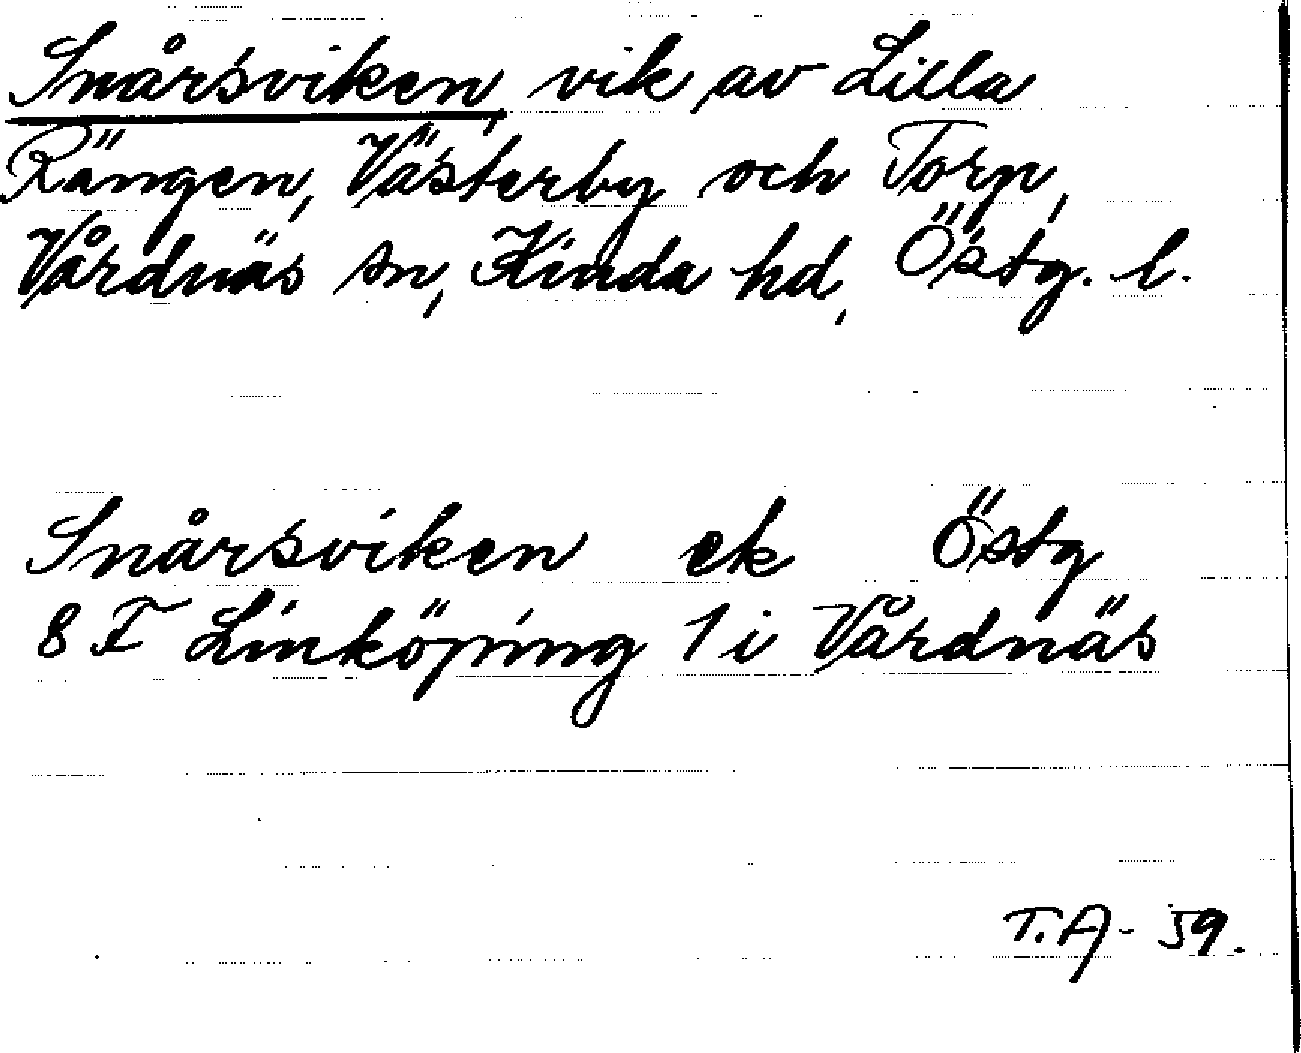 Snårsviken, vik av Lilla
Rängen, Västerby och Torp,
Vårdnäs sn, Kinda hd, Östg. l.
Snårsviken ek Östg
8 F Linköping 1 i Vårdnäs
T.A - 59.